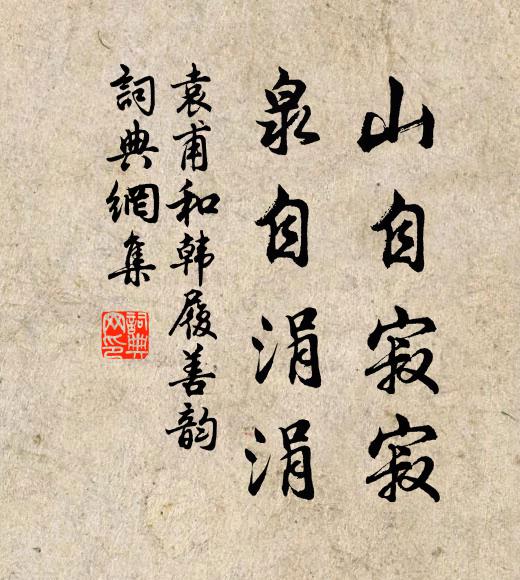 山自寂寂
泉自涓涓
袁甫和韩履善韵
詞典網集
詞典
网印